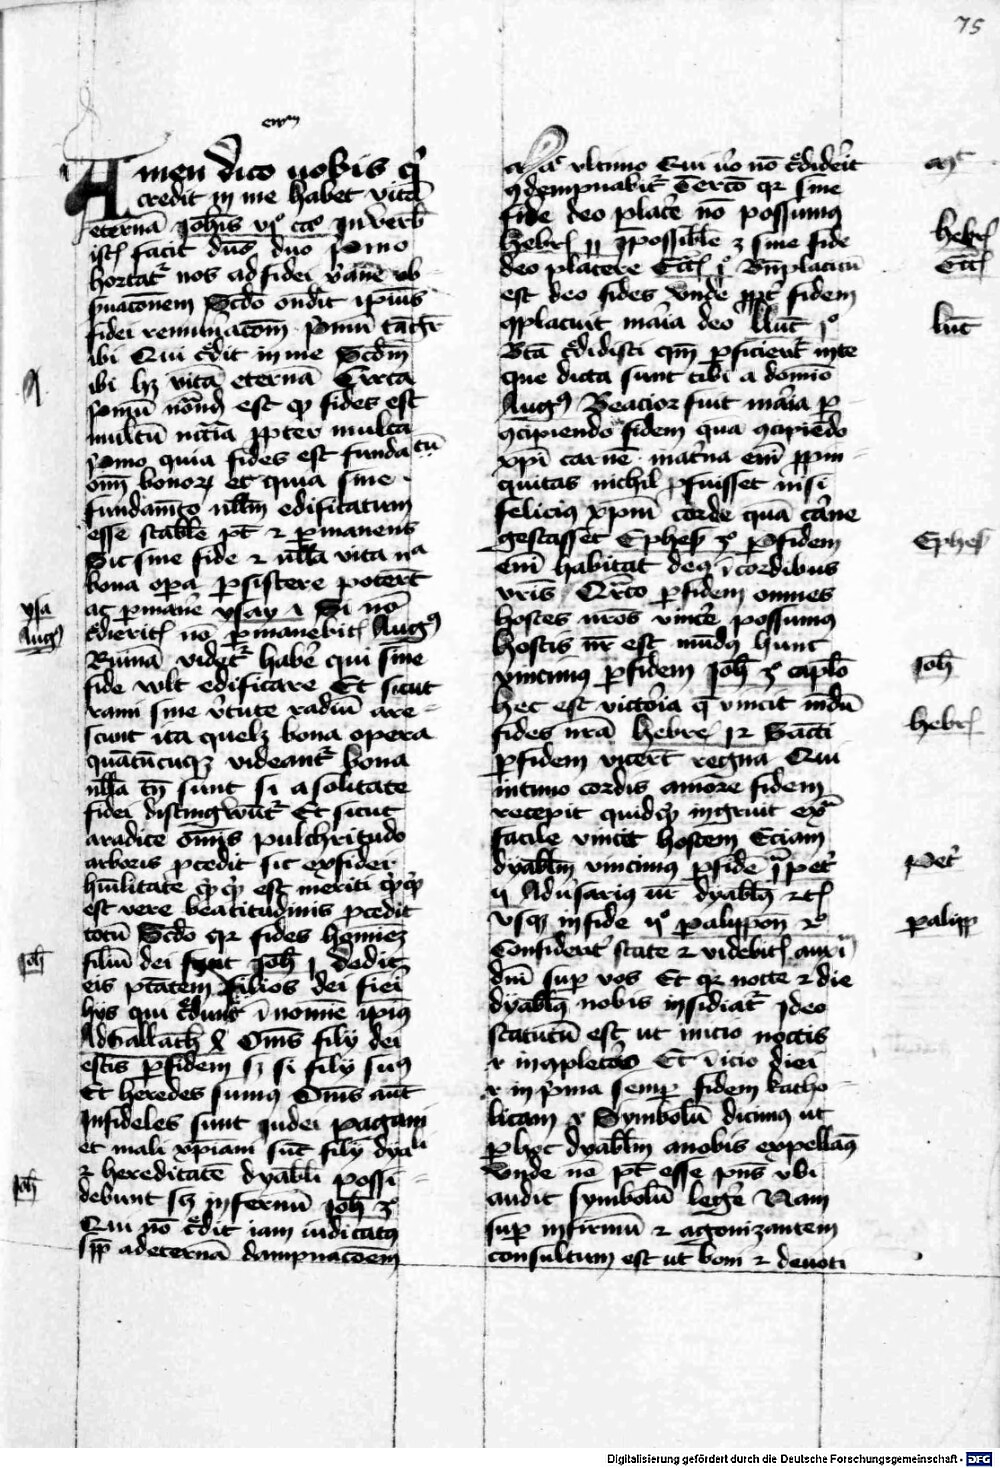 75
Amen dico uobis qͥ
credit in me habet vitā
eternā Joh̄is vjº caº In verb̄
istꝭ facit dn̄s duo pͥmo
hortatͬ nos ad fidei v̓am̄ ob
Scd̓o ondit ipiꝰ
fidei remun̓acōem pͥmū
ibi Qui c̓dit in me Scd̓m
ibi hꝫ vitā eternā Circa
pͥmū nōnd est qͥ fides est
multū
ꝓpter multa
pͥmo quia fides est funda
om̄ bonoꝝ et quia sine
fundam̄to nll̄m edificatum
esse stabile pt̄ ⁊ ꝑmanens
Sic sine fide ⁊ nlla vita
bona oꝑa ꝑsistere poterit
ac ꝑmane̓ ysay Si nō
c̓dieritꝭ nō ꝑmanebitꝭ Augꝰ
Ruinā videtͬ habe̓ qui sine
fide vult edificare Et sicut
rami sine v̓tute radicū are
scunt ita quelꝫ bona opera
quātūcūqꝫ videantͬ bona
nlla tn̄ sunt si a soliditate
fidei distingwūtͬ Et sicut
a radice om̄is pulchritudo
arboris ꝓcedit sic ex fidei
hūilitate qͥcqͥd est meriti qͥcqͥd
est vere beatitudinis ꝓcedit
totū Scd̓o qꝛ fides
filiū dei Joh̄ j dedit
eis ptātem filios dei fieri
hijs qui c̓dunt ī nomīe ipiꝰ
Ad Gallath̄ Om̄s filij dei
estis ꝑ fidem sꝫ si filij sumꝰ
Et heredes sumꝰ Om̄s aūt
Infideles sunt Judei pagani
et mali xp̄iani sūt filij dya
⁊ hereditatē dyabli possi
debunt sꝫ infernū Joh̄ 3º
Qui nō c̓dit iam iudicatꝰ
ad eternā dampnacōem
vltimo Qui v̓o nō c̓dide̓it
ꝯdempnabitͬ Tercō qꝛ sine
fide deo place̓ nō possumꝰ
Hebrꝭ Impossibile ē sine fide
deo placere Eccꝭ jº Bn̄placitū
est deo fides Vnde ꝓpt̓ fidem
ꝯplacuit maria deo Luc̄ jº
Btā c̓didisti qm̄ ꝑficient̓ in te
que dicta sunt tibi a domīo
Augꝰ Beacior fuit maria ꝑ
ꝯcipiendo fidem qua ꝯcipiēdo
xp̄i carnē mat̓na em̄ ꝓpin
quitas nichil ꝓfuisset nisi
felicius xp̄m corde quā carne
gestasset Ephes̄ 3º Per fidem
em̄ habitat deꝰ ī cordibus
vr̄is Qrto per fidem omnes
hostes nr̄os vince̓ possumꝰ
Hostis nr̄ est mūdꝰ hunc
vincimꝰ ꝑ fidem Joh̄ 3º
hec est victoria q̄ vincit mūdū
fides nr̄a Hebre̓ Sancti
ꝑ fidem vicert̄ regna Qui
intimo cordis amore fidem
recepit quidqͥd ingruit
facile vincit hostem Eciam
dyablm̄ vincimꝰ ꝑ fidē Pet̓
v Adu̓sarius nr̄ dyablꝰ ⁊cꝭ
Confident̓ state ⁊ videbitꝭ auxiᵐ
dn̄i suꝑ vos Et qꝛ nocte ⁊ die
dyablꝰ nobis insidiatͬ Ideo
statutū est ut inicio noctis
⁊ in ꝯpletorio Et inicio diei
⁊ in pͥma semꝑ fidem katho
licam ⁊ Symbolū dicimꝰ ut
ꝑ hoc dyablm̄ a nobis expellamꝰ
Vnde nō pt̄ esse pn̄s vbi
audit symbolū lege̓ Nam
suꝑ infirmū ⁊ agonizantem
consultum est ut boni ⁊ deuoti
ysa
Augꝰ
Joh̄
Joh̄
hebrꝭ
Eccꝭ
luc̄
Ephes̄
Joh̄
hebrꝭ
Pet̓
palipp
Digitalisierung gefördert durch die Deutsche Forschungsgemeinschaft - DFG